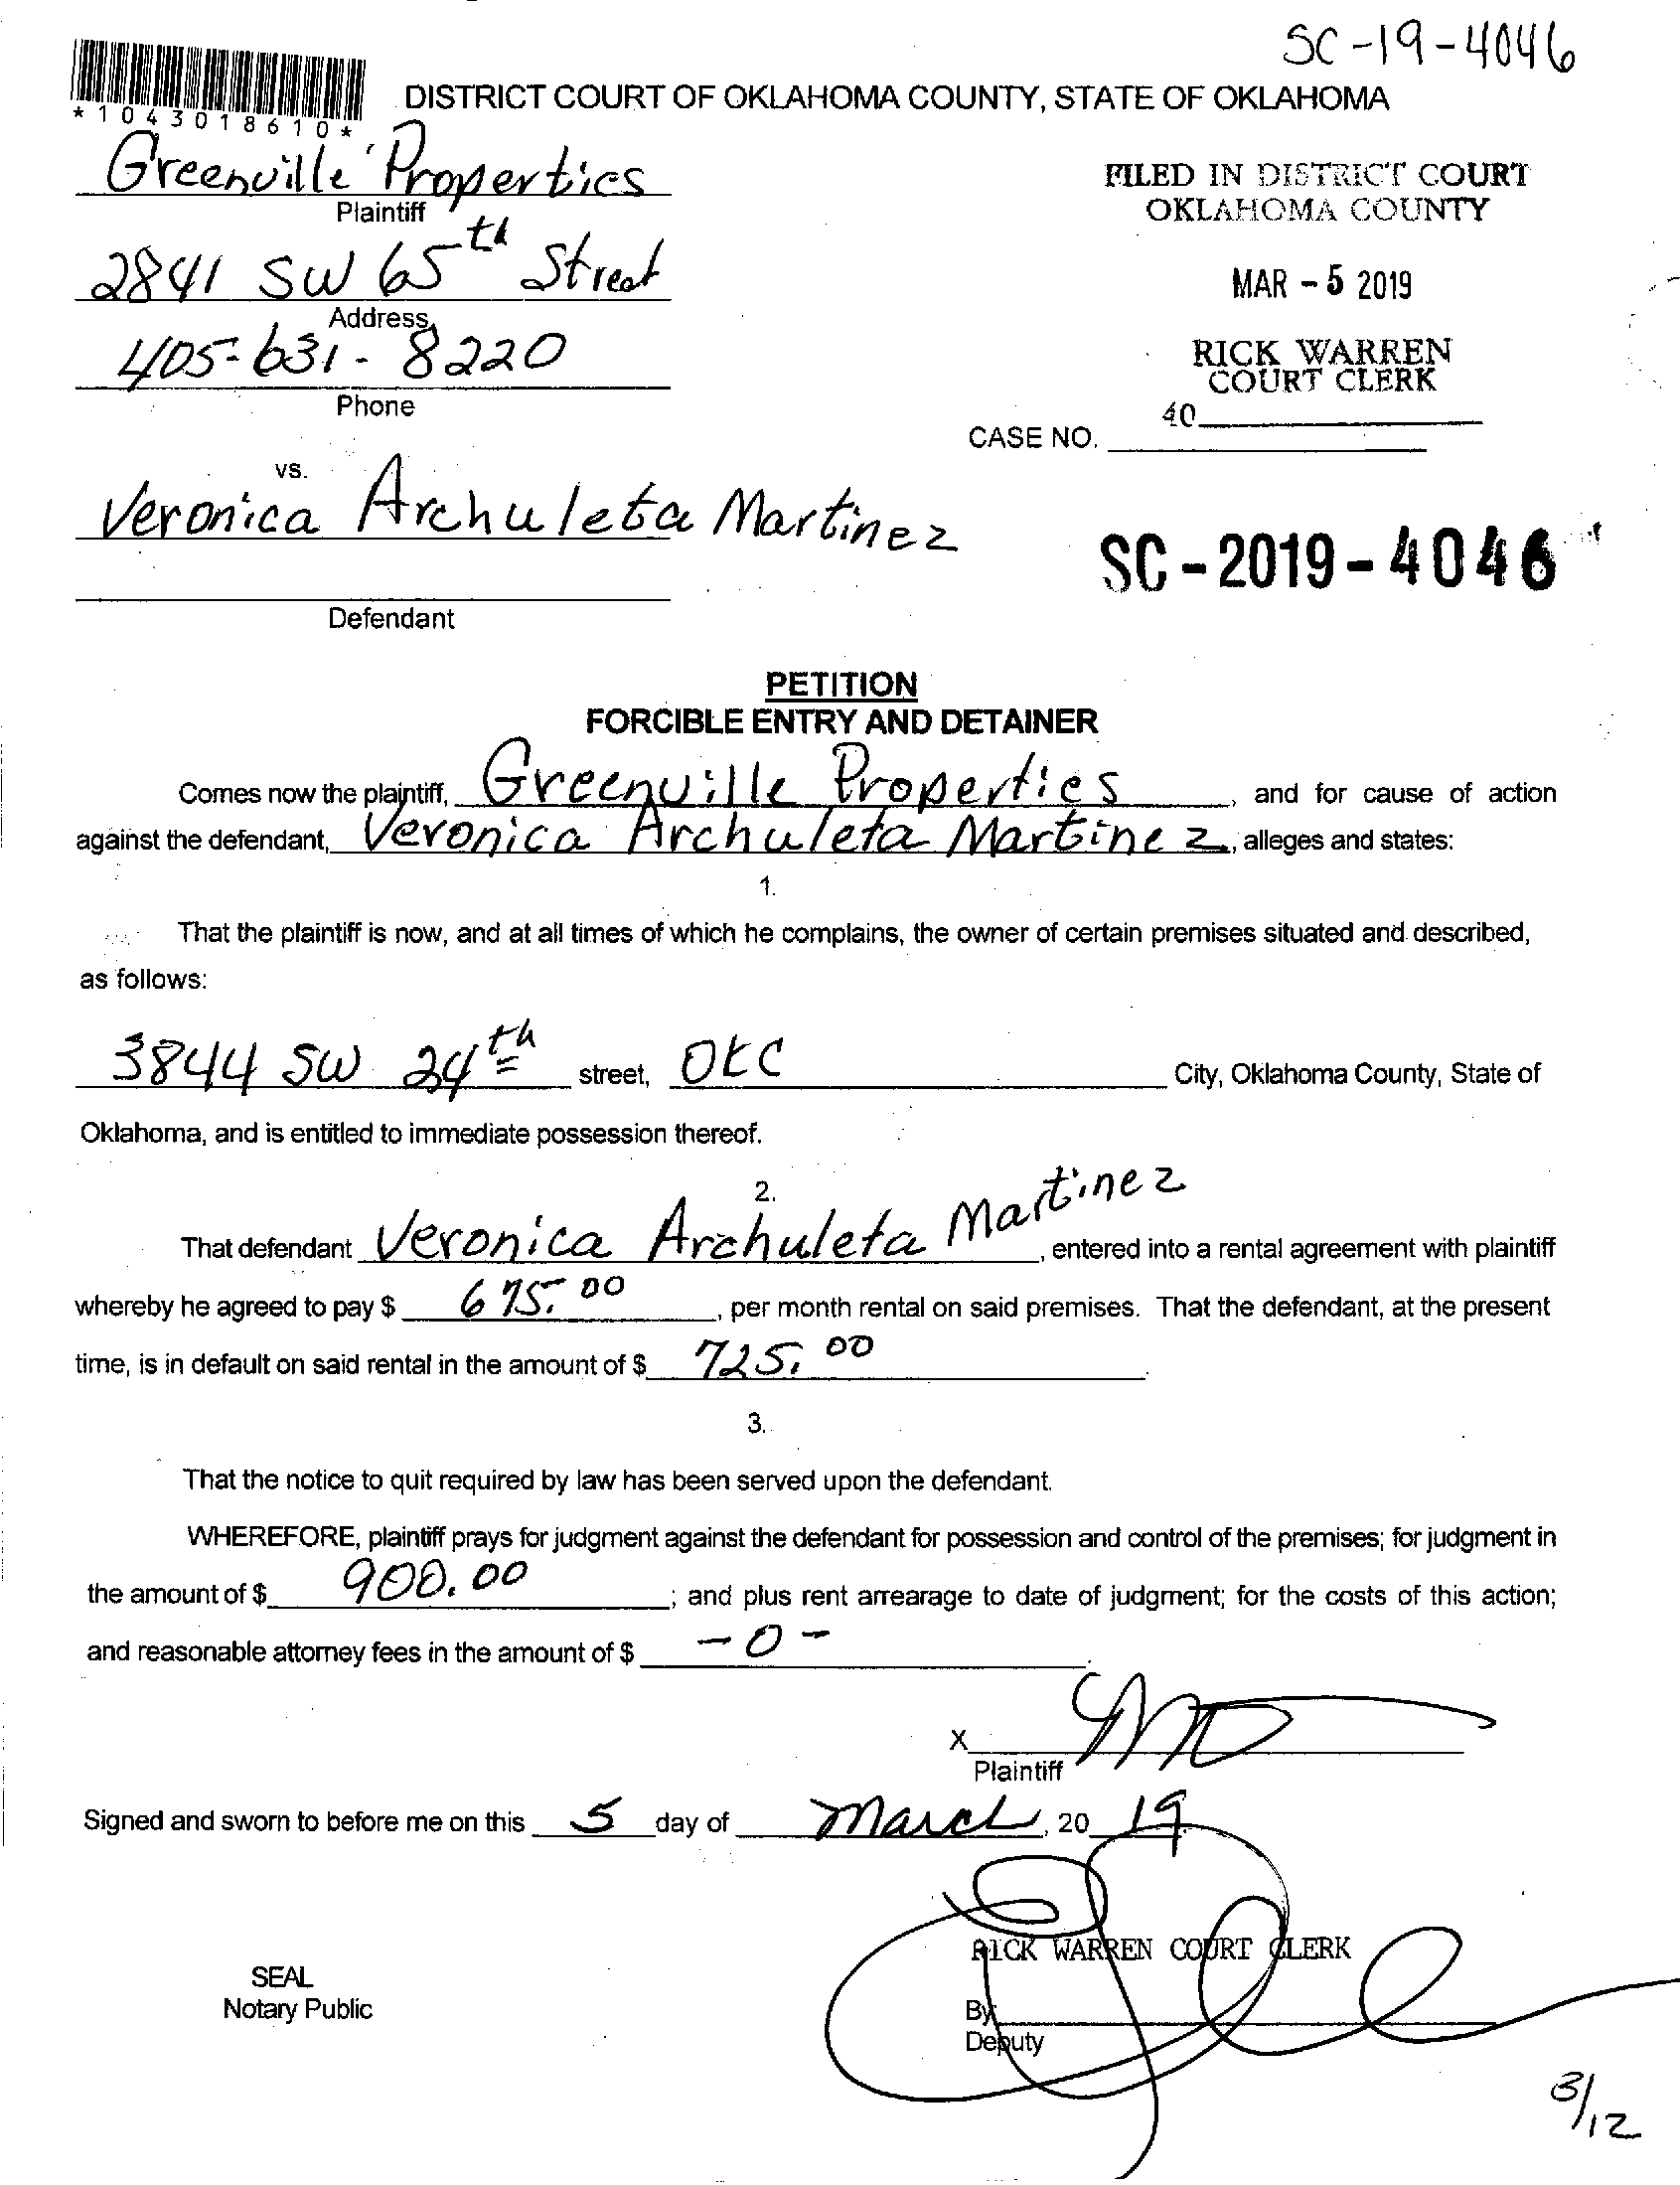 SC-19-4046
*1043018610*
DISTRICT COURT OF OKLAHOMA COUNTY, STATE OF OKLAHOMA
Greenville Properties
Plaintiff
FILED IN DISTRICT COURT
OKLAHOMA COUNTY
2841 SW 65th Street
Address
MAR - 5 2019
405-631-8220
Phone
RICK WARREN
COURT CLERK
40
CASE NO.
vs.
Veronica Archuleta Martinez
SC-2019-4046
Defendant
PETITION
FORCIBLE ENTRY AND DETAINER
Comes now the plaintiff, Greenville Properties, and for cause of action
against the defendant, Veronica Archuleta Martinez, alleges and states:
1.
That the plaintiff is now, and at all times of which he complains, the owner of certain premises situated and described,
as follows:
3844 SW 24th street, OKC City, Oklahoma County, State of
Oklahoma, and is entitled to immediate possession thereof.
2.
That defendant Veronica Archuleta Martinez, entered into a rental agreement with plaintiff
whereby he agreed to pay $ 675.00, per month rental on said premises. That the defendant, at the present
time, is in default on said rental in the amount of $ 725.00.
3.
That the notice to quit required by law has been served upon the defendant.
WHEREFORE, plaintiff prays for judgment against the defendant for possession and control of the premises; for judgment in
the amount of $ 900.00; and plus rent arrearage to date of judgment; for the costs of this action;
and reasonable attorney fees in the amount of $ -0-.
X
Plaintiff
Signed and sworn to before me on this 5 day of March, 20 19
RICK WARREN COURT CLERK
SEAL
Notary Public
By
Deputy
3/12